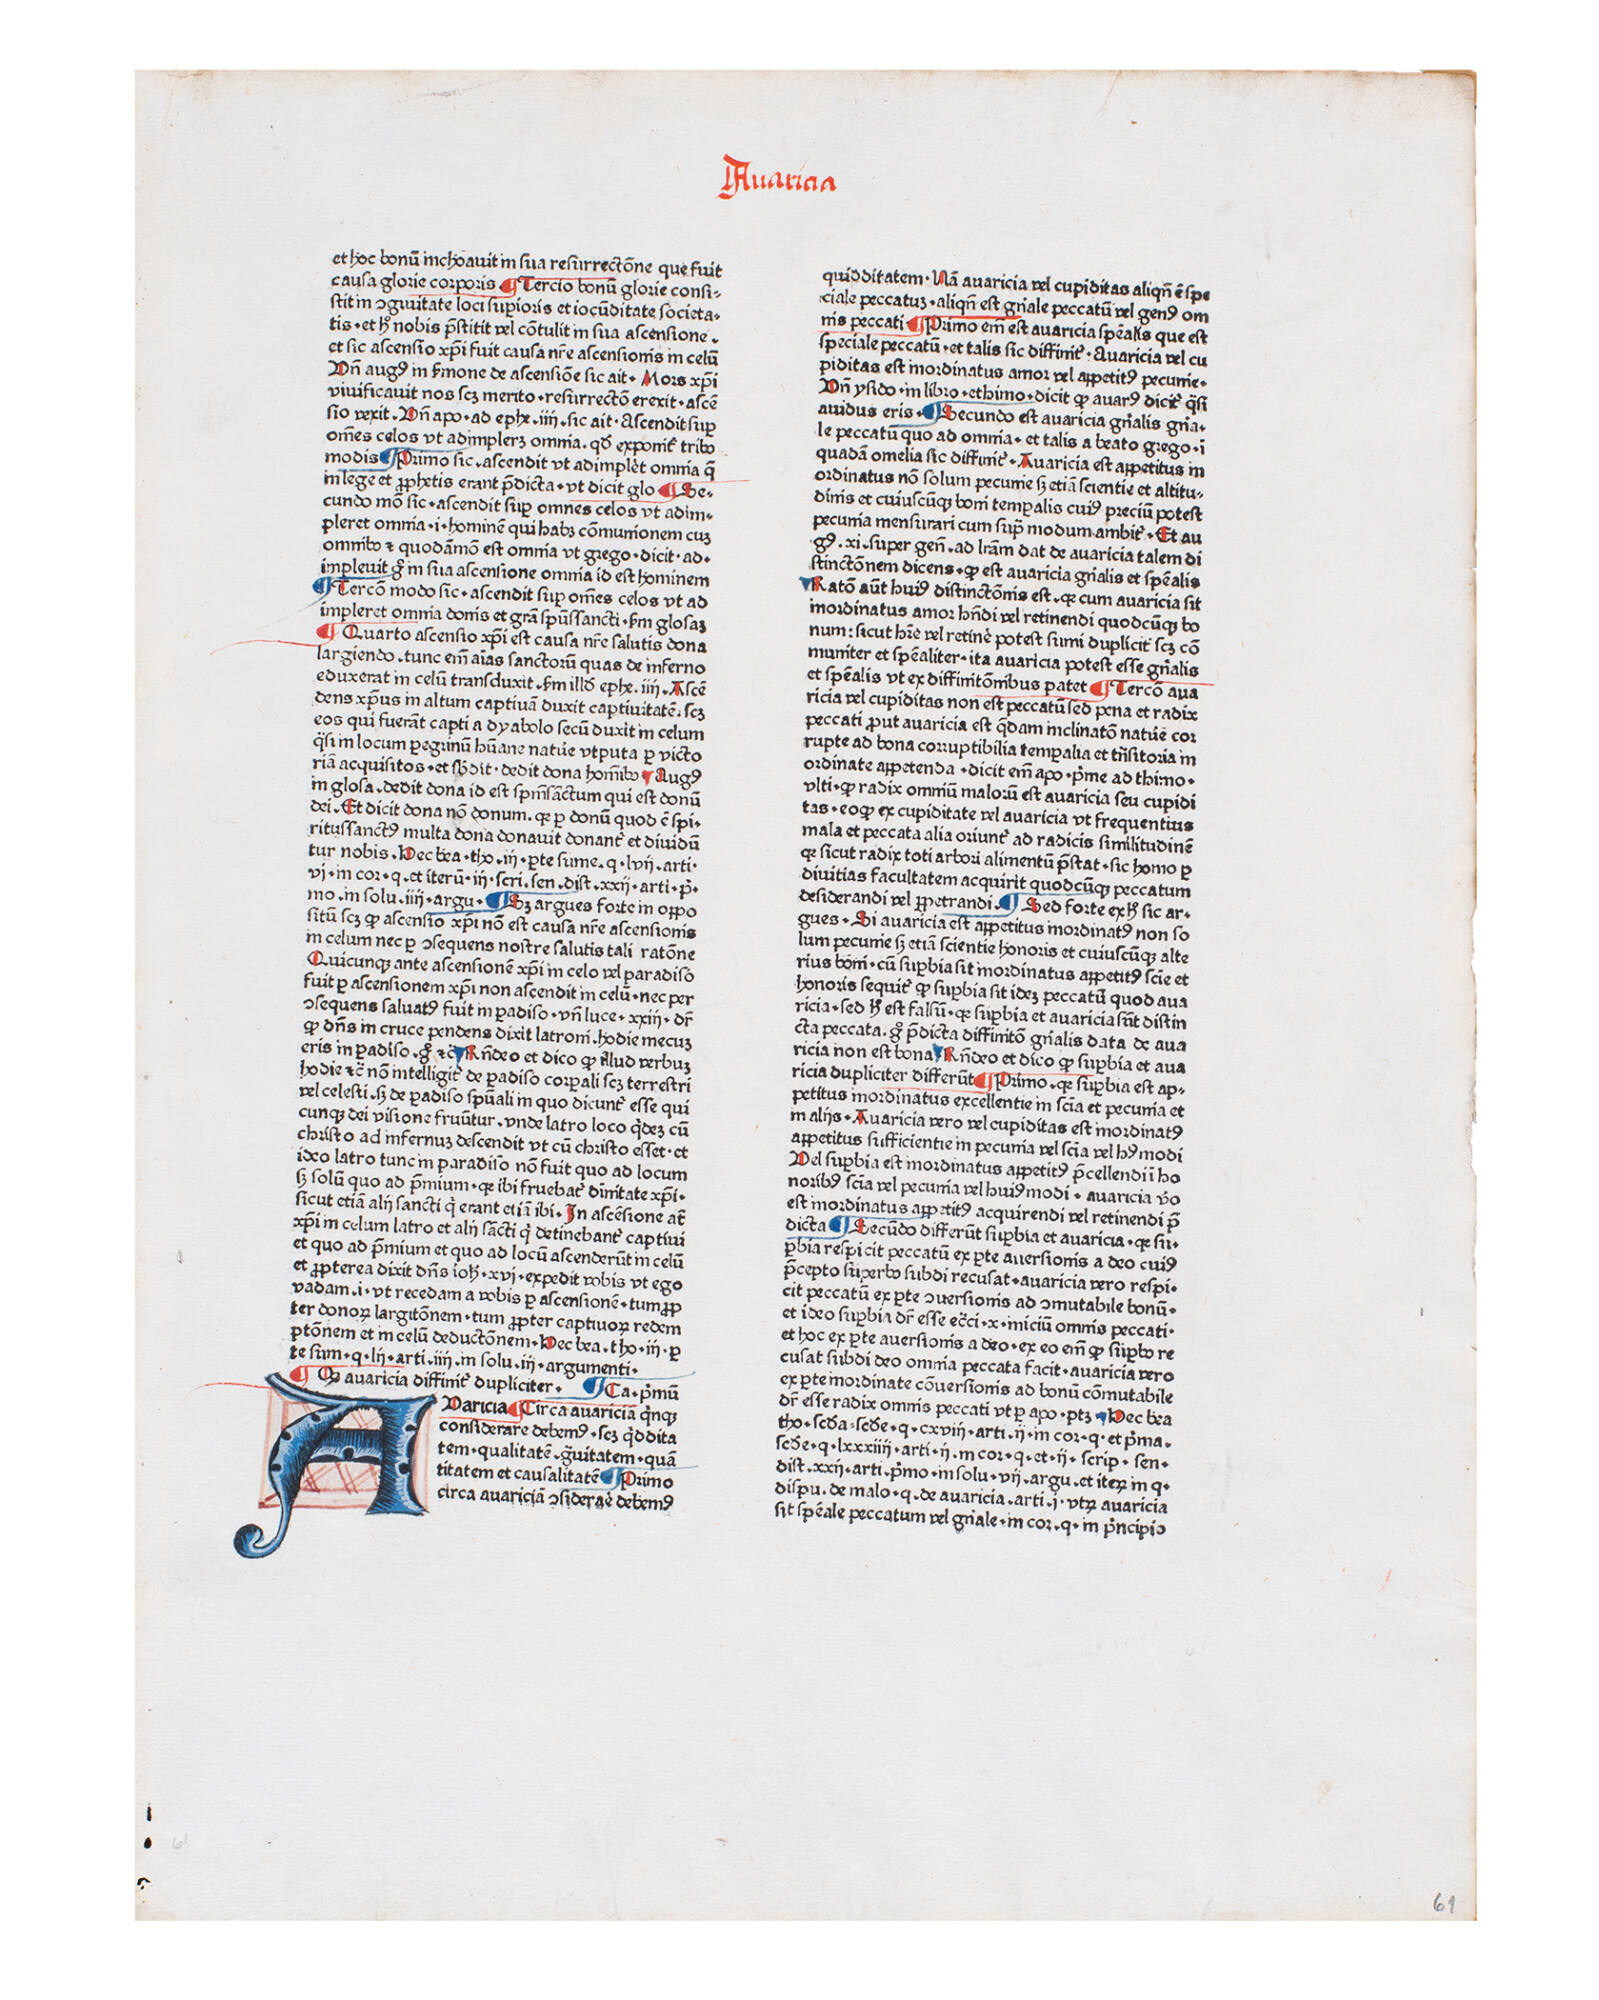 Auaricia
et hoc bonū inchoauit in sua resurrectōne que fuit
causa glorie corporis ¶ Tercio bonū glorie consi-
stit in ꝯgruitate loci supioris et iocūditate societa-
tis · et h̊ nobis p̄stitit vel cōtulit in sua ascensione .
et sic ascensio xp̄i fuit causa nr̄e ascensionis in celū
Vn̄ augꝰ in s̄mone de ascensiōe sic ait · Mors xp̄i
viuificauit nos scꝫ merito · resurrectō erexit · ascē
sio vexit . Vn̄ apo · ad ephe . iiij . sic ait · Ascendit suꝑ
om̄es celos vt adimplerꝫ omnia . qd̄ exponit᷑ tribꝰ
modis ¶ Primo sic . ascendit vt adimplēt omnia q̄
in lege et ꝓphetis erant p̄dicta · vt dicit glo ¶ Se-
cundo mō sic · ascendit suꝑ omnes celos vt adim-
pleret omnia · i · hominē qui habꝫ cōmunionem cuꝫ
omnibꝰ ⁊ quodāmō est omnia vt grego · dicit · ad-
impleuit gͦ in sua ascensione omnia id est hominem
¶ Tercō modo sic · ascendit suꝑ om̄es celos vt ad
impleret omnia donis et grā sp̄ussancti · sm̄ glosaꝫ
¶ Quarto ascensio xp̄i est causa nr̄e salutis dona
largiendo . tunc em̄ aīas sanctorū quas de inferno
eduxerat in celū transduxit . sm̄ illd̄ ephe . iiij . Ascē
dens xp̄us in altum captiuā duxit captiuitatē . scꝫ
eos qui fuerāt capti a dyabolo secū duxit in celum
q̄si in locum peregrinū hūane natuře vtputa ꝑ victo
riā acquisitos · et sb̄dit · dedit dona hom̄ibꝰ Augꝰ
in glosa . dedit dona id est spm̄sanctum qui est donū
dei . Et dicit dona nō donum . qꝛ ꝑ donū quod ē spi-
ritussanctꝰ multa dona donauit donant᷑ et diuidū
tur nobis . Hec bea · tho . iij · ꝑte sume . q · lvij . arti ·
vj · in cor · q . et iterū · iij · scri . sen . dist . xxij · arti · p̄ ·
mo . in solu . iiij · argu · ¶ Sꝫ argues forte in oppo
sitū scꝫ ꝙ ascensio xp̄i nō est causa nr̄e ascensionis
in celum nec ꝑ ꝯsequens nostre salutis tali ratōne
Quicunqꝫ ante ascensionē xp̄i in celo vel paradiso
fuit ꝑ ascensionem xp̄i non ascendit in celū · nec per
ꝯsequens saluatꝰ fuit in ꝑadiso · vn̄ luce · xxiij · dr̄
ꝙ dn̄s in cruce pendens dixit latroni . hodie mecuꝫ
eris in ꝑadiso . gͦ ⁊c̄ Rn̄deo et dico ꝙ illud verbuꝫ
hodie ⁊c̄ nō intelligit᷑ de ꝑadiso corꝑali scꝫ terrestri
vel celesti . sꝫ de ꝑadiso spūali in quo dicunt᷑ esse qui
cunqꝫ dei visione fruūtur . vnde latro loco q̇deꝫ cū
christo ad infernuꝫ descendit vt cū christo esset · et
ideo latro tunc in paradiso nō fuit quo ad locum
sꝫ solū quo ad p̄mium · qꝛ ibi fruebat᷑ diuinitate xp̄i ·
sicut etiā alij sancti q̇ erant etiā ibi · In ascēsione at̄
xp̄i in celum latro et alij sācti q̇ detinebant᷑ captiui
et quo ad p̄mium et quo ad locū ascenderūt in celū
et ꝓpterea dixit dn̄s ioh̄ · xvi · expedit vobis vt ego
vadam . i · vt recedam a vobis ꝑ ascensionē · tum ꝓp
ter donoꝝ largitōnem · tum ꝓpter captiuoꝝ redem
ptōnem et in celū deductōnem · Hec bea . tho · iij · ꝑ
te sum · q · lij · arti . iiij . in solu . iij · argumenti ·
¶ Qꝫ auaricia diffinit᷑ dupliciter . ¶ Ca · p̄mū
AVaricia ¶ Circa auariciā q̇nqꝫ
considerare debemꝰ · scꝫ q̇ddita
tem · qualitatē . g̊uitatem · quā
titatem et causalitatē ¶ Primo
circa auariciā ꝯsideraře debemꝰ
quidditatem · Nā auaricia vel cupiditas aliqn̄ ē spe
ciale peccatuꝫ · aliqn̄ est gn̄ale peccatū vel genꝰ om
nis peccati ¶ Primo em̄ est auaricia spēalis que est
speciale peccatū · et talis sic diffinit᷑ · Auaricia vel cu
piditas est inordinatus amor vel appetitꝰ pecunie ·
Vn̄ ysido · in libro · ethimo · dicit ꝙ auarꝰ dicit᷑ q̄si
auidus eris · ¶ Secundo est auaricia gn̄alis gn̄a-
le peccatū quo ad omnia · et talis a beato grego · i
quadā omelia sic diffinit᷑ · Auaricia est appetitus in
ordinatus nō solum pecunie sꝫ etiā scientie et altitu-
dinis et cuiuscūqꝫ boni temꝑalis cuiꝰ preciū potest
pecunia mensurari cum supͣ modum ambit᷑ · Et au
gꝰ . xi · super gen̄ . ad lrām dat de auaricia talem di
stinctōnem dicens · ꝙ est auaricia gn̄alis et spēalis
Ratō aūt huiꝰ distinctōnis est · qꝛ cum auaricia sit
inordinatus amor hn̄di vel retinendi quodcūqꝫ bo
num : sicut hr̄e vel retinē potest sumi duplicit᷑ scꝫ cō
muniter et spēaliter · ita auaricia potest esse gn̄alis
et spēalis vt ex diffinitōnibus patet ¶ Tercō aua
ricia vel cupiditas non est peccatū sed pena et radix
peccati ꝓut auaricia est q̄dam inclinatō natuře cor
rupte ad bona corruptibilia temꝑalia et trāsitoria in
ordinate appetenda · dicit em̄ apo · p̄me ad thimo ·
vlti · ꝙ radix omniū maloꝝ est auaricia seu cupidi
tas · eo ꝙ ex cupiditate vel auaricia vt frequentius
mala et peccata alia oriunt᷑ ad radicis similitudinē
qꝛ sicut radix toti arbori alimentū p̄stat · sic homo ꝑ
diuitias facultatem acquirit quodcūqꝫ peccatum
desiderandi vel ꝑpetrandi . ¶ Sed forte ex h̊ sic ar-
gues · Si auaricia est appetitus inordinatꝰ non so
lum pecunie sꝫ etiā scientie honoris et cuiuscūqꝫ alte
rius boni · cū suꝑbia sit inordinatus appetitꝰ scīe et
honoris sequit᷑ ꝙ suꝑbia sit ideꝫ peccatū quod aua
ricia · sed h̊ est falsū · qꝛ suꝑbia et auaricia sūt distin
cta peccata . gͦ p̄dicta diffinitō gn̄alis data de aua
ricia non est bona Rn̄deo et dico ꝙ suꝑbia et aua
ricia dupliciter differūt ¶ Primo · qꝛ suꝑbia est ap-
petitus inordinatus excellentie in scīa et pecunia et
in alijs · Auaricia vero vel cupiditas est inordinatꝰ
appetitus sufficientie in pecunia vel scīa vel hꝰmodi
Vel suꝑbia est inordinatus appetitꝰ p̄cellendi ī ho
noribꝰ scīa vel pecunia vel huiꝰmodi · auaricia v̊o
est inordinatus appetitꝰ acquirendi vel retinendi p̄
dicta ¶ Secūdo differūt suꝑbia et auaricia · qꝛ su-
ꝑbia respicit peccatū ex ꝑte auersionis a deo cuiꝰ
p̄cepto suꝑbꝰ subdi recusat · auaricia vero respi-
cit peccatū ex ꝑte ꝯuersionis ad ꝯmutabile bonū ·
et ideo suꝑbia dr̄ esse ec̄ci · x · iniciū omnis peccati ·
et hoc ex ꝑte auersionis a deo · ex eo em̄ ꝙ suꝑbꝰ re
cusat subdi deo omnia peccata facit · auaricia vero
ex ꝑte inordinate cōuersionis ad bonū cōmutabile
dr̄ esse radix omnis peccati vt ꝑ apo · ptꝫ Hec bea
tho · scd̄a scd̄e · q · cxviij · arti · ij · in cor · q · et p̄ma .
scd̄e · q · lxxxiiij · arti · ij . in cor · q · et · ij · scrip · sen ·
dist . xxij · arti · p̄mo · in solu · vij · argu . et iteꝝ in q ·
dispu . de malo · q · de auaricia . arti . j · vtꝝ auaricia
sit spēale peccatum vel gn̄ale · in cor . q · in p̄ncipio
61
61